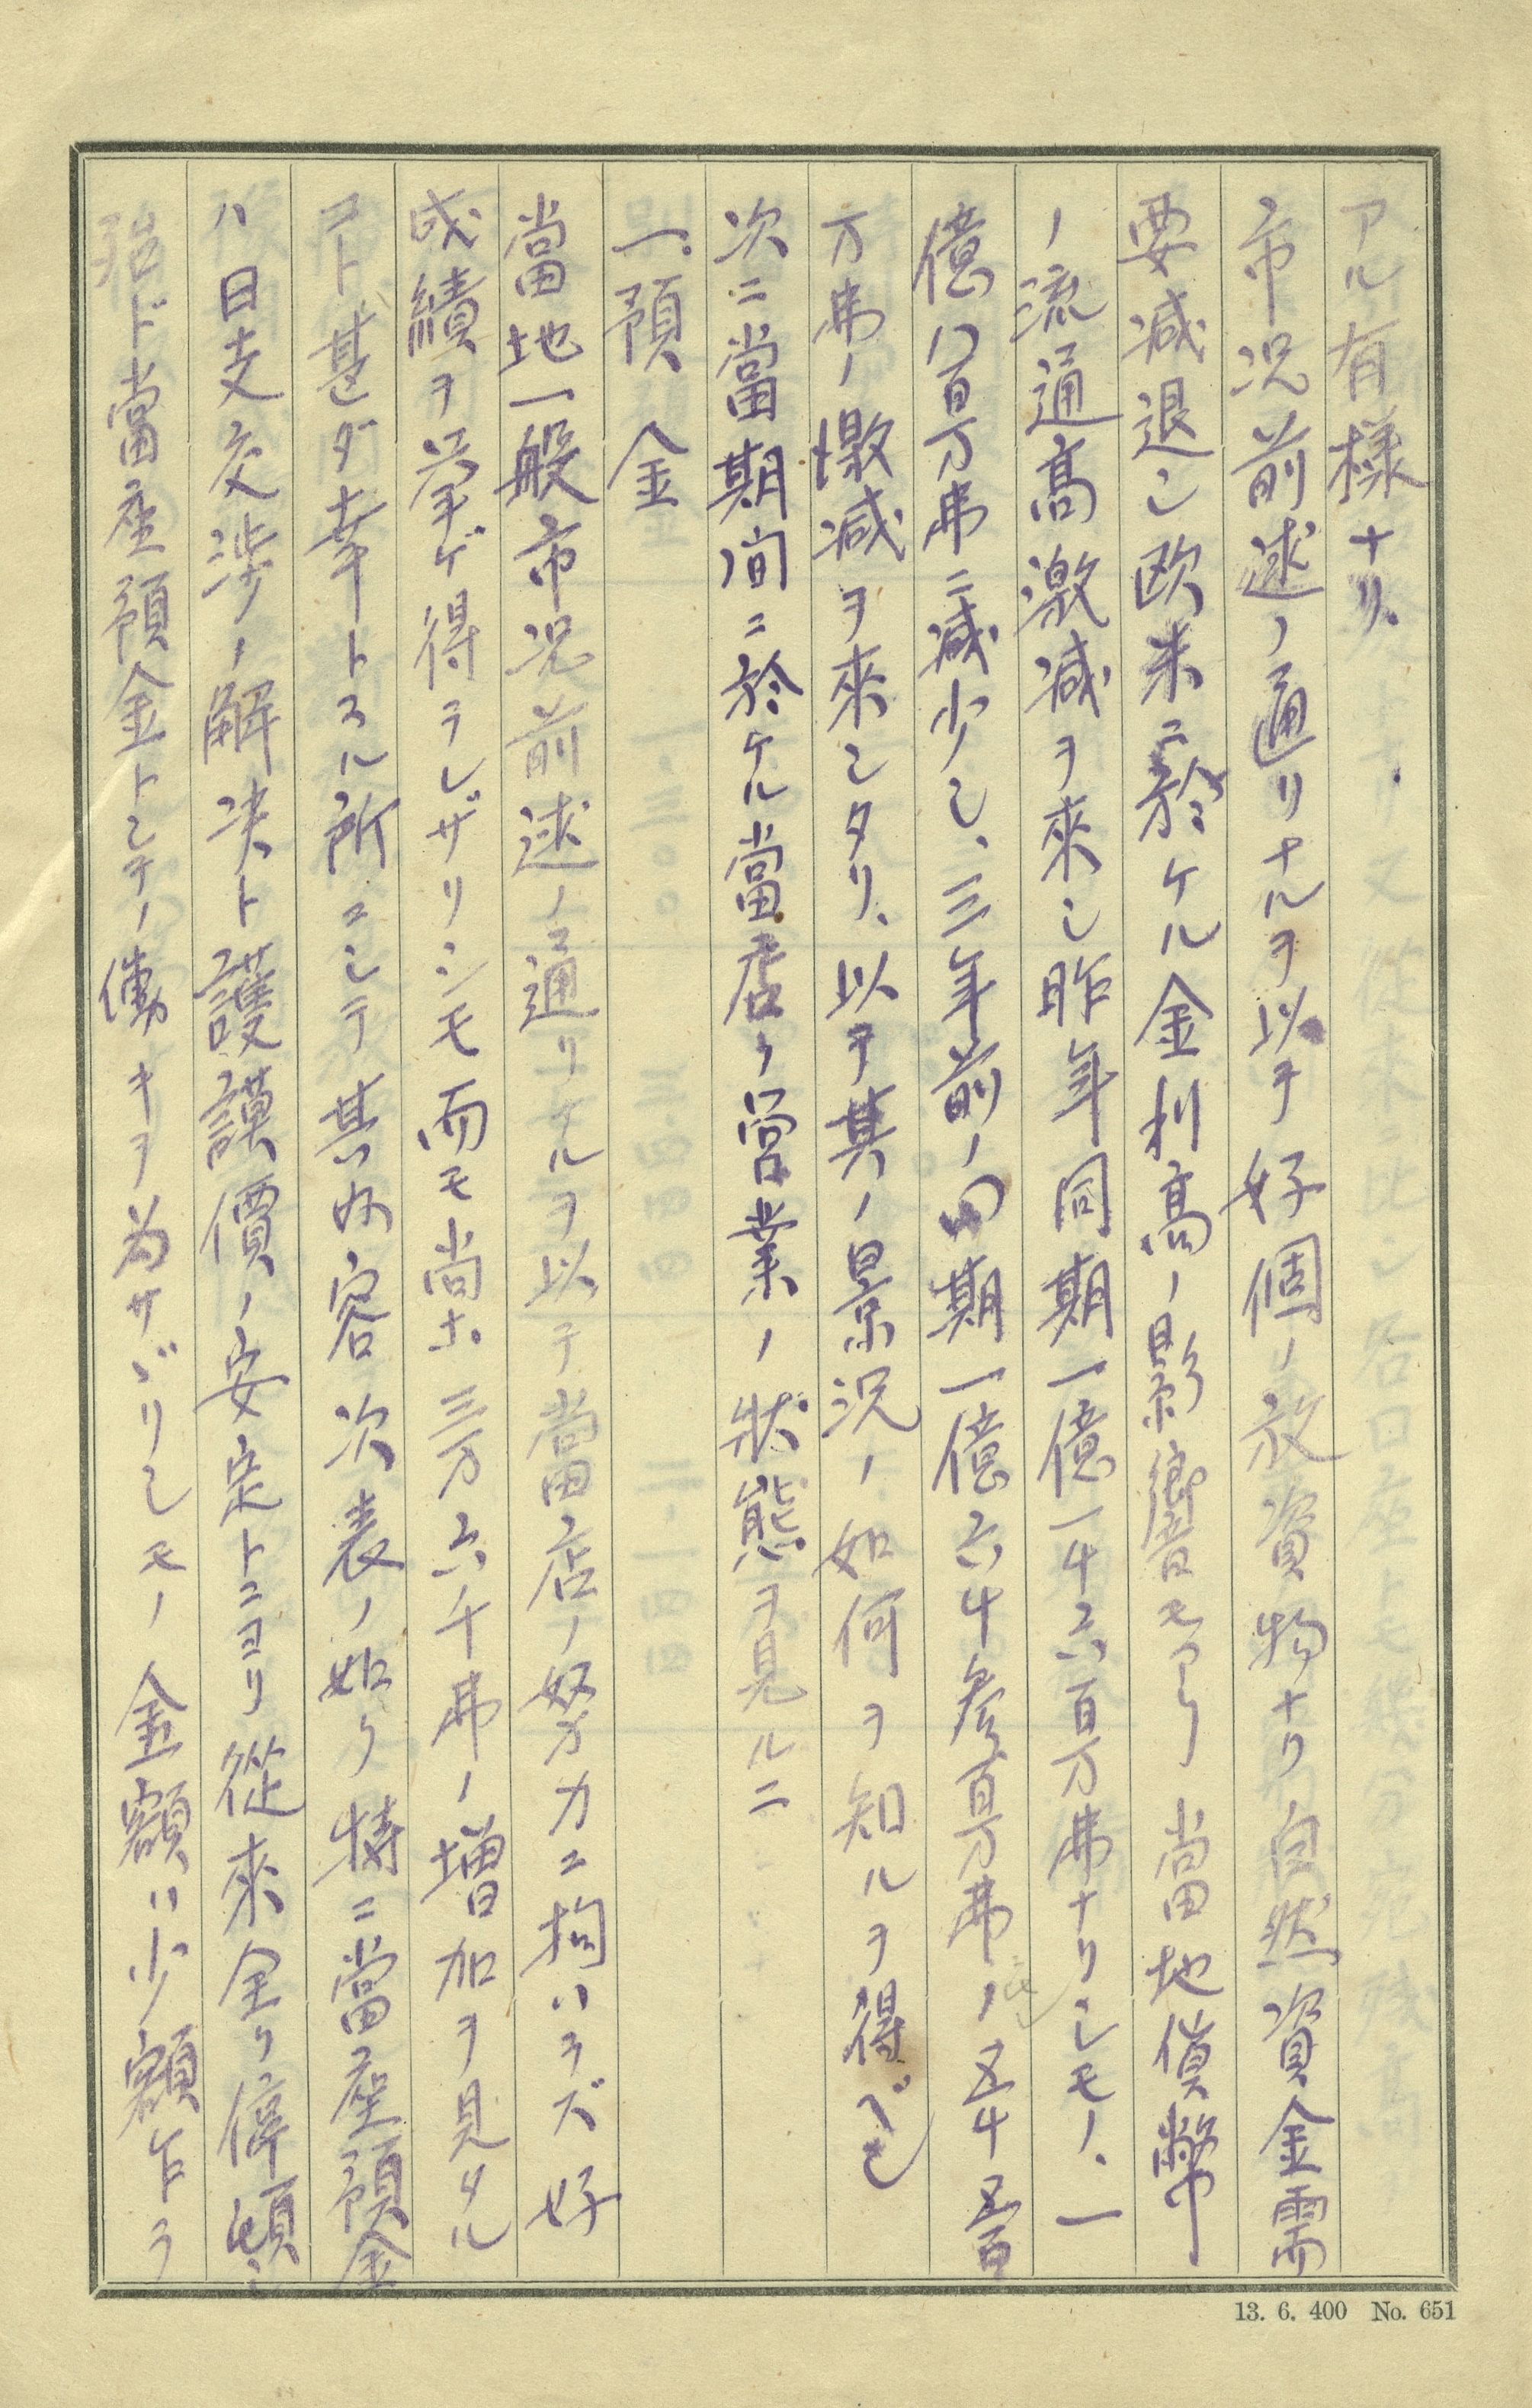 アル有様ナリ、
市況前述ノ通リナルヲ以テ好個ノ放資物ナク自然資金需
要減退シ欧米ニ於ケル金利高ノ影響モアリ當地貨幣
ノ流通高激減ヲ來シ昨年同期一億一千六百万弗ナリシモノ、一
億八百万弗ニ減少シ、三年前ノ同期一億六千参百万弗ノ五千五百
万弗ノ激減ヲ來シタリ、以テ其ノ景況ノ如何ヲ知ルヲ得ベシ
次ニ當期間ニ於ケル當店ノ営業ノ状態ヲ見ルニ
一、預金
當地一般市況前述ノ通リナルヲ以テ當店ノ努力ニ拘ハラズ好
成績ヲ挙ゲ得ラレザリシモ而モ尚ホ三万六千弗ノ増加ヲ見タル
コト甚ダ幸トスル所ニシテ其内容次表ノ如ク特ニ當座預金
ハ日支交渉ノ解決ト護謨價ノ安定トニヨリ從來全ク停頓シ
殆ド當座預金トシテノ働キヲ為サザリシモノ金額ハ少額乍ラ
13. 6. 400 No. 651